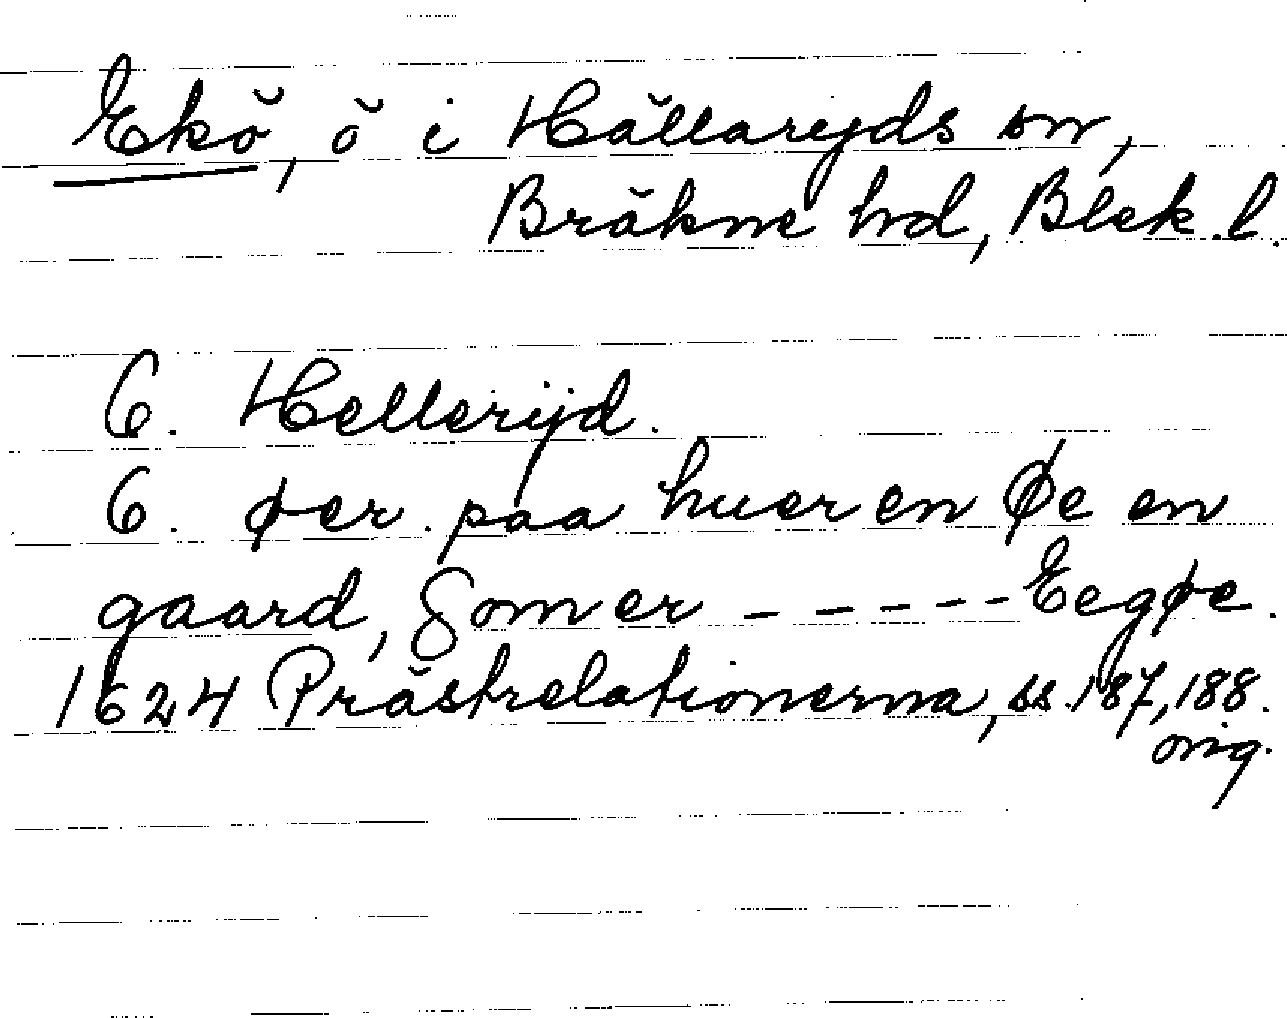 Ekö, ö i Hällaryds sn,
Bräkne hd, Blek. l.
6. Hellerijd.
6. øer. paa huer en Øe en
gaard, Som er ----- Eegøe.
1624 Prästrelationerna, ss. 187, 188.
orig.